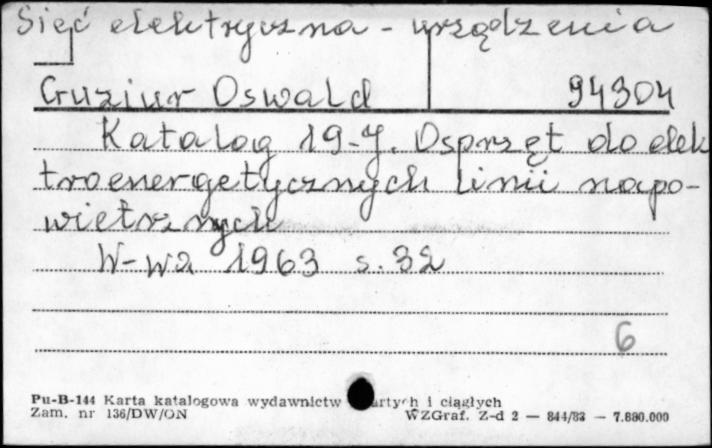 Sieć elektryczna - urządzenia
Guziur Oswald 94304
Katalog 19-J. Osprzęt do elek
troenergetycznych linii napo-
wietrznych
W-wa 1963 s. 32
6
Pu-B-144 Karta katalogowa wydawnictw i ciągłych
Zam. nr 136/DW/ON WZGraf. Z-d 2 — 844/83 — 7.880.000